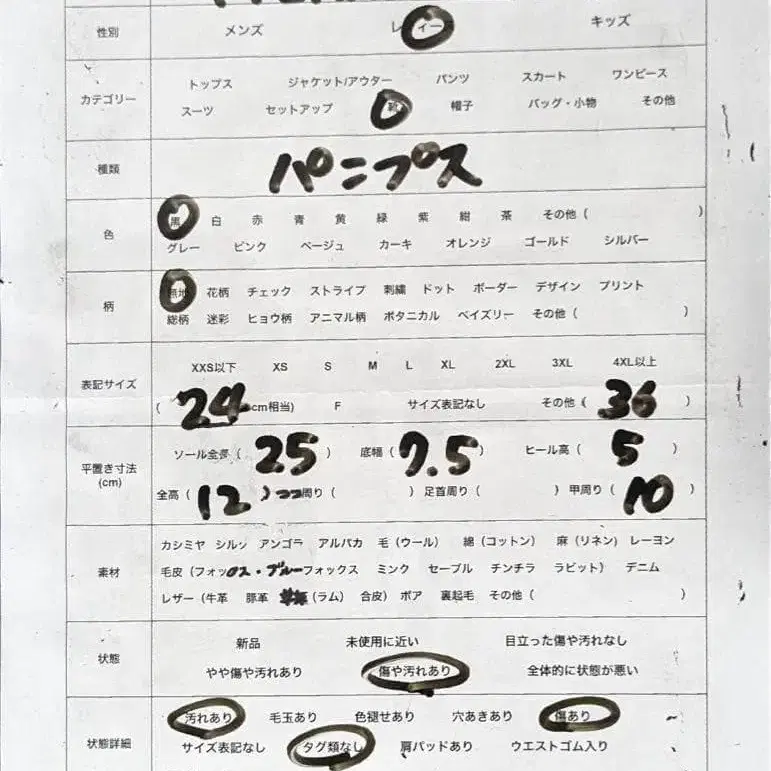 性別 メンズ レディー キッズ
トップス ジャケット/アウター パンツ スカート ワンピース
カテゴリー
スーツ セットアップ 靴 帽子 バッグ・小物 その他
種類 パンプス
色 黒 白 赤 青 黄 緑 紫 紺 茶 その他 ( )
グレー ピンク ベージュ カーキ オレンジ ゴールド シルバー
柄 無地 花柄 チェック ストライプ 刺繍 ドット ボーダー デザイン プリント
総柄 迷彩 ヒョウ柄 アニマル柄 ボタニカル ペイズリー その他 ( )
XXS以下 XS S M L XL 2XL 3XL 4XL以上
表記サイズ
( 24 cm相当) F サイズ表記なし その他 ( 36 )
ソール全長 ( 25 ) 底幅 ( 7.5 ) ヒール高 ( 5 )
平置き寸法
(cm)
全高 ( 12 ) 周り ( ) 足首周り ( ) 甲周り ( 10 )
カシミヤ シルク アンゴラ アルパカ 毛 (ウール) 綿 (コットン) 麻 (リネン) レーヨン
素材 毛皮 (フォックス・ブルーフォックス ミンク セーブル チンチラ ラビット) デニム
レザー (牛革 豚革 (ラム) 合皮) ボア 裏起毛 その他 ( )
新品 未使用に近い 目立った傷や汚れなし
状態
やや傷や汚れあり 傷や汚れあり 全体的に状態が悪い
汚れあり 毛玉あり 色褪せあり 穴あきあり 傷あり
状態詳細 サイズ表記なし タグ類なし 肩パッドあり ウエストゴム入り